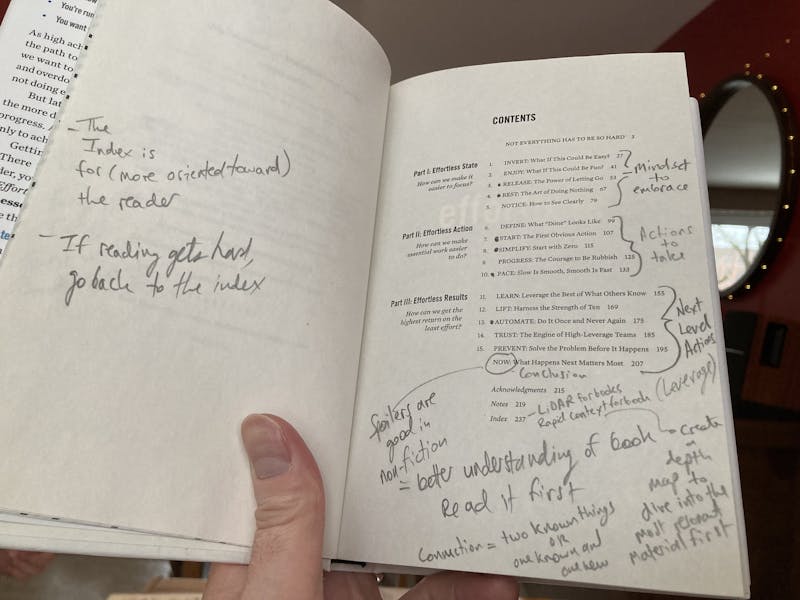 You're run
You want
As high ach
the path to
we want to
and overdo
not doing e
But lat
the more d
progress. A
nly to ach
Gettin
There
– The
Index is
for (more oriented toward)
the reader
– If reading gets hard,
go back to the index
CONTENTS
NOT EVERYTHING HAS TO BE SO HARD 3
Part I: Effortless State
How can we make it
easier to focus?
1. INVERT: What If This Could Be Easy? 27
2. ENJOY: What If This Could Be Fun? 41
3. RELEASE: The Power of Letting Go 53
4. REST: The Art of Doing Nothing 67
5. NOTICE: How to See Clearly 79
Mindset
to
embrace
Part II: Effortless Action
How can we make
essential work easier
to do?
6. DEFINE: What "Done" Looks Like 99
7. START: The First Obvious Action 107
8. SIMPLIFY: Start with Zero 115
9. PROGRESS: The Courage to Be Rubbish 123
10. PACE: Slow Is Smooth, Smooth Is Fast 133
Actions
to
take
Part III: Effortless Results
How can we get the
highest return on the
least effort?
11. LEARN: Leverage the Best of What Others Know 155
12. LIFT: Harness the Strength of Ten 169
13. AUTOMATE: Do It Once and Never Again 175
14. TRUST: The Engine of High-Leverage Teams 185
15. PREVENT: Solve the Problem Before It Happens 195
NOW: What Happens Next Matters Most 207
Next
Level
Actions
(Leverage)
Conclusion
Acknowledgments 215
Notes 219
Index 237
– LiDAR for books
Rapid Context for book
Spoilers are
good in
non-fiction
= better understanding of book
Read it first
Connection = two known things
or
one known and
one new
create
a
depth
map to
dive into the
most relevant
material first